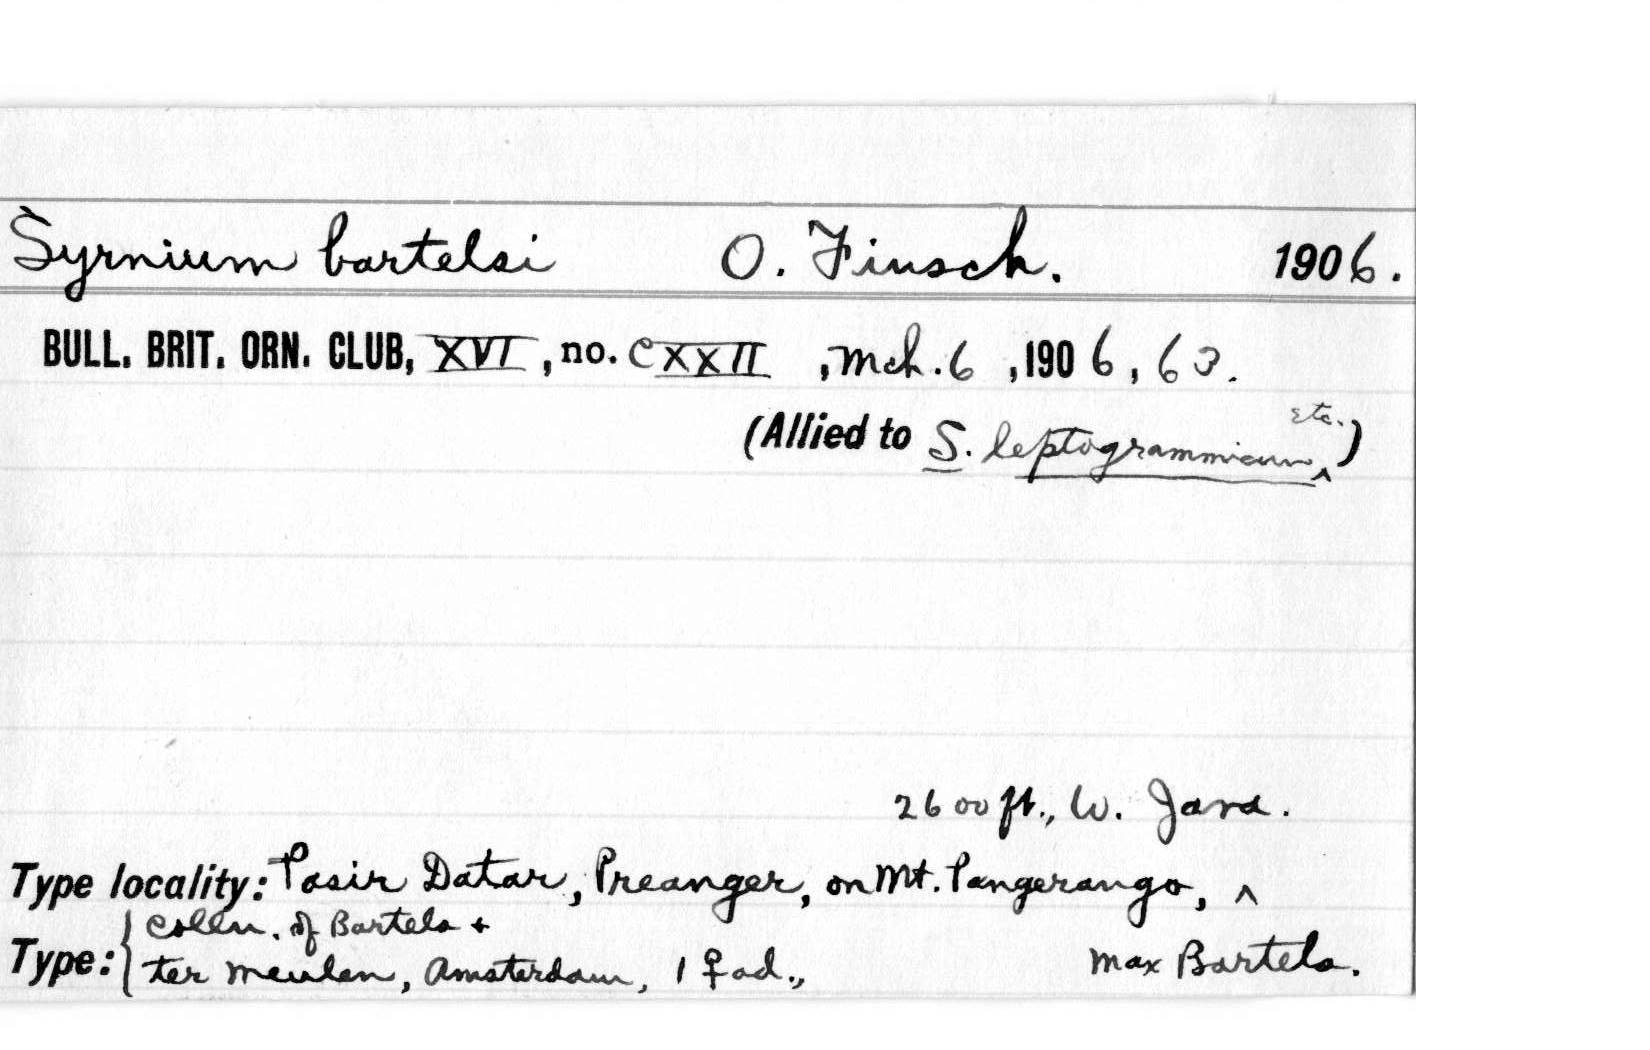 Syrnium bartelsi O. Finsch. 1906.
BULL. BRIT. ORN. CLUB, XVI, no. CXXII, Mch. 6, 1906, 63.
etc.
(Allied to S. leptogrammicum ^)
2600 ft., W. Java.
Type locality: Pasir Datar, Preanger, on Mt. Pangerango, ^
Colln. of Bartels +
Type: { ter Meulen, Amsterdam, 1 ♀ ad., Max Bartels.